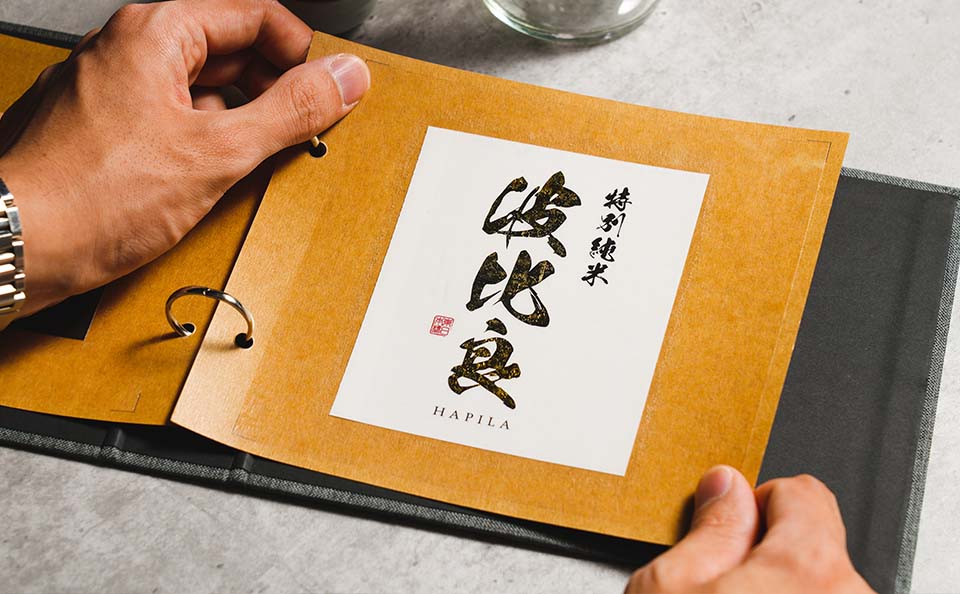 特別純米
波比良
HAPILA